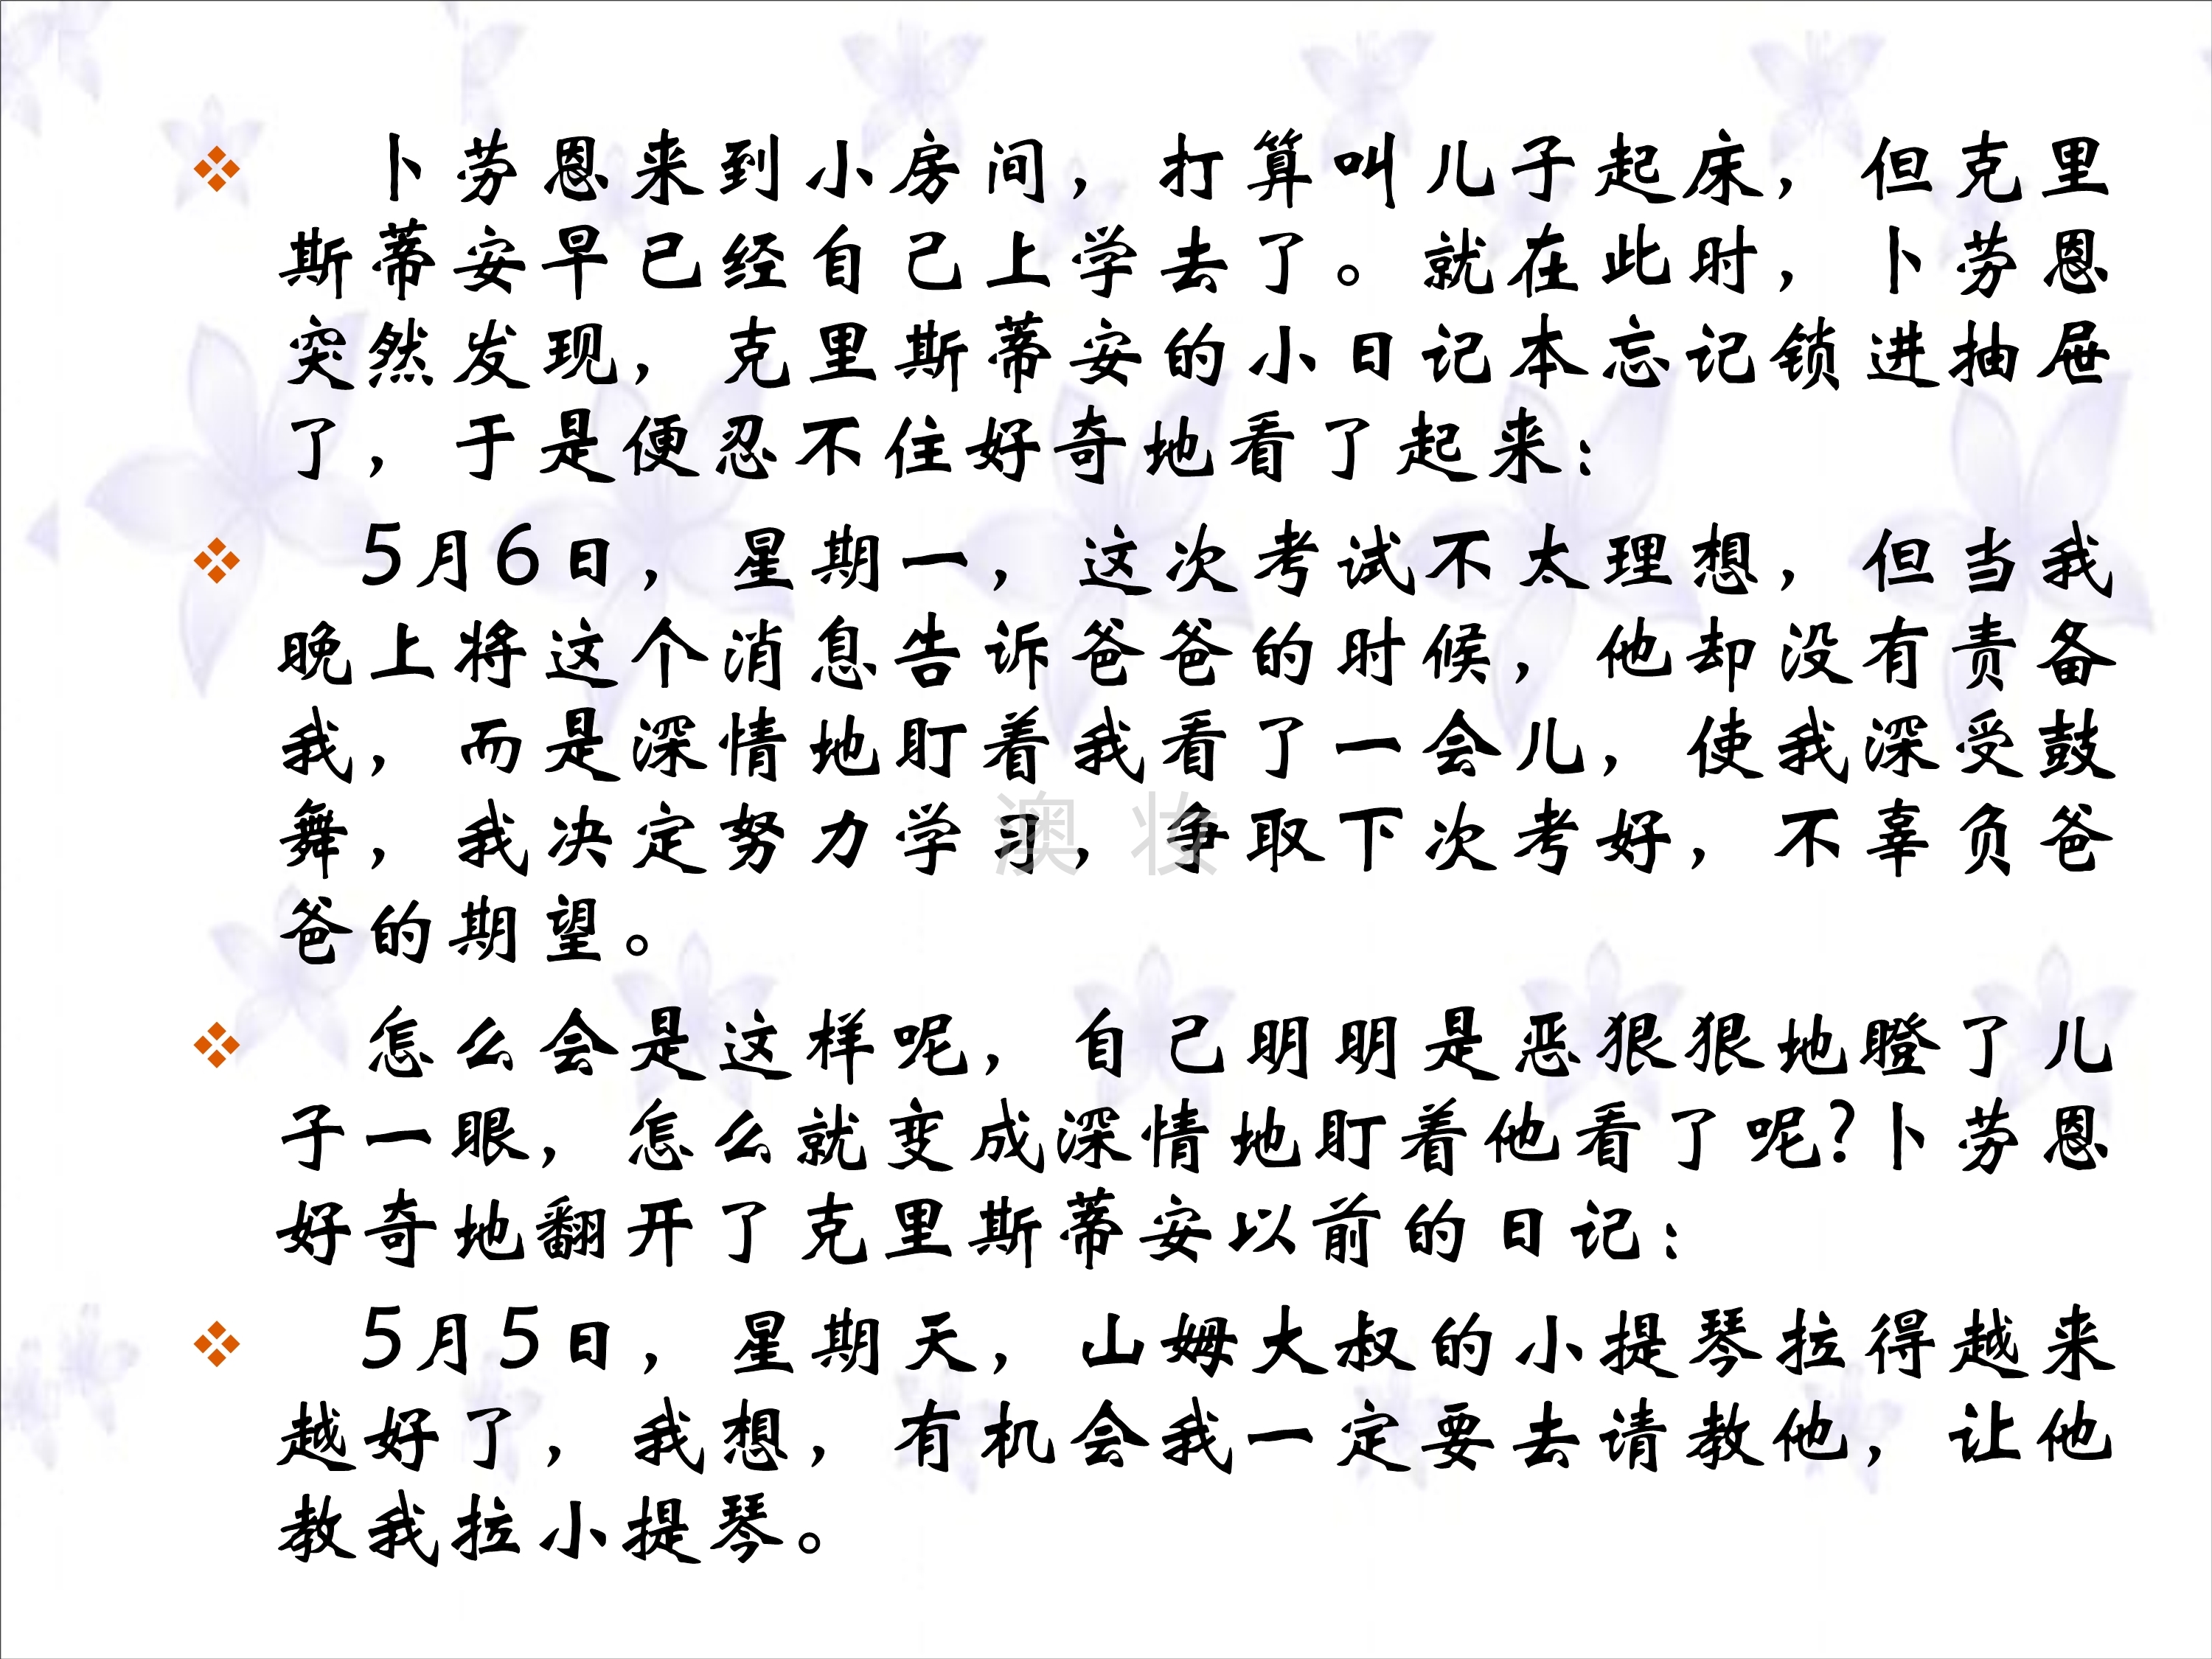 卜劳恩来到小房间，打算叫儿子起床，但克里
斯蒂安早已经自己上学去了。就在此时，卜劳恩
突然发现，克里斯蒂安的小日记本忘记锁进抽屉
了，于是便忍不住好奇地看了起来：
5月6日，星期一，这次考试不太理想，但当我
晚上将这个消息告诉爸爸的时候，他却没有责备
我，而是深情地盯着我看了一会儿，使我深受鼓
舞，我决定努力学习，争取下次考好，不辜负爸
爸的期望。
澳 妆
怎么会是这样呢，自己明明是恶狠狠地瞪了儿
子一眼，怎么就变成深情地盯着他看了呢?卜劳恩
好奇地翻开了克里斯蒂安以前的日记：
5月5日，星期天，山姆大叔的小提琴拉得越来
越好了，我想，有机会我一定要去请教他，让他
教我拉小提琴。